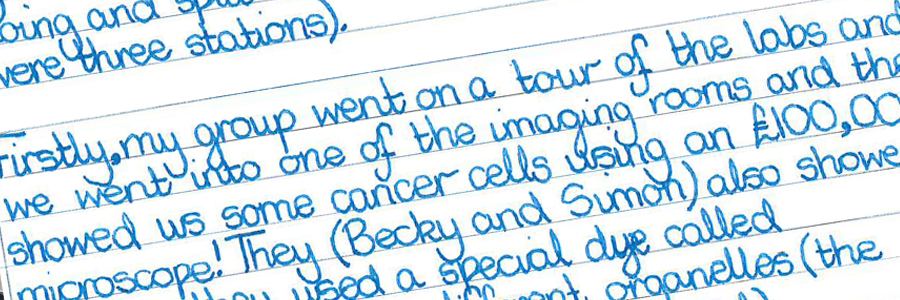 and
were three stations).
Firstly, my group went on a tour of the labs and
we went into one of the imaging rooms and
showed us some cancer cells using an £100,00
microscope! They (Becky and Simon) also showe
used a special dye called
organelles (the